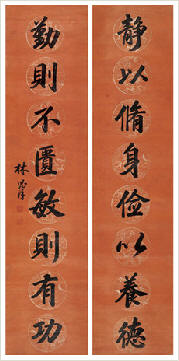 靜以脩身儉以養德
勤則不匱敏則有功
林則徐